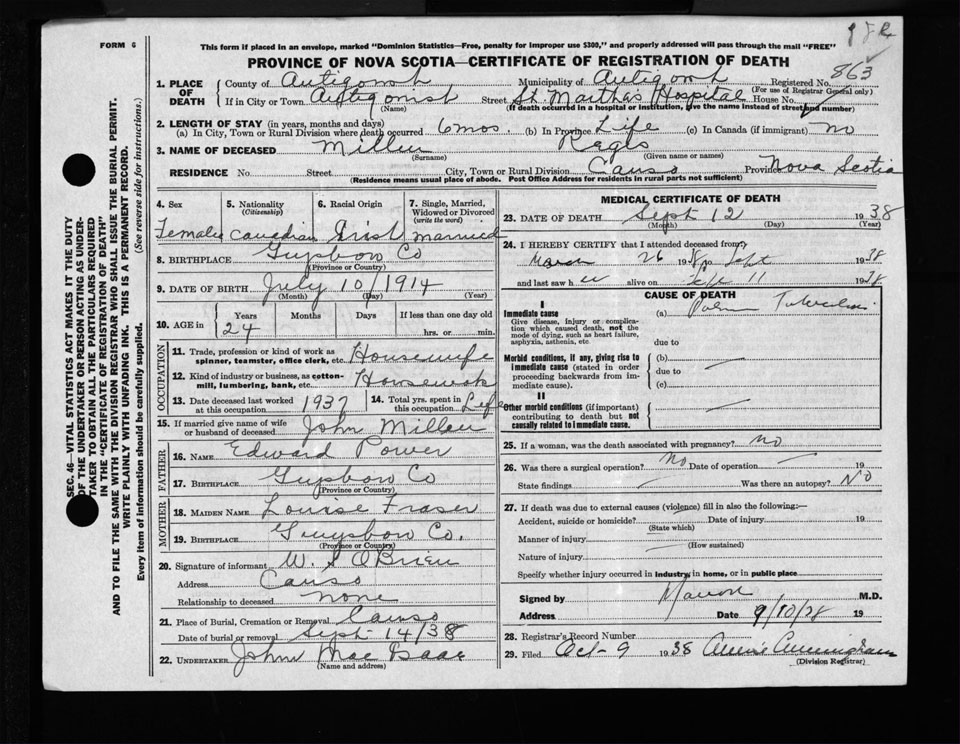 FORM 6
This form if placed in an envelope, marked "Dominion Statistics—Free, penalty for improper use $300," and properly addressed will pass through the mail "FREE"
PROVINCE OF NOVA SCOTIA—CERTIFICATE OF REGISTRATION OF DEATH
863
1. PLACE OF DEATH
County of Antigonish Municipality of Antigonish Registered No.
(For use of Registrar General only)
If in City or Town Antigonish Street St. Martha's Hospital House No.
(Name) (If death occurred in a hospital or institution, give the name instead of street and number)
2. LENGTH OF STAY (in years, months and days)
(a) In City, Town or Rural Division where death occurred 6 mos. (b) In Province Life (c) In Canada (if immigrant) no
3. NAME OF DECEASED Millen
(Surname) (Given name or names)
RESIDENCE No. Street City, Town or Rural Division Canso Province Nova Scotia
(Residence means usual place of abode. Post Office Address for residents in rural parts not sufficient)
4. Sex 5. Nationality (Citizenship) 6. Racial Origin 7. Single, Married, Widowed or Divorced (write the word)
Female Canadian Irish married
8. BIRTHPLACE Guysboro Co
(Province or Country)
9. DATE OF BIRTH July 10/1914
(Month) (Day) (Year)
10. AGE in Years Months Days If less than one day old
24 hrs. or min.
OCCUPATION
11. Trade, profession or kind of work as spinner, teamster, office clerk, etc. Housewife
12. Kind of industry or business, as cotton-mill, lumbering, bank, etc. Housework
13. Date deceased last worked at this occupation 1937 14. Total yrs. spent in this occupation Life
15. If married give name of wife or husband of deceased John Millen
FATHER
16. NAME Edward Power
17. BIRTHPLACE Guysboro Co
(Province or Country)
MOTHER
18. MAIDEN NAME Louise Fraser
19. BIRTHPLACE Guysboro Co.
(Province or Country)
20. Signature of informant W. S O'Brien
Address Canso
Relationship to deceased none
21. Place of Burial, Cremation or Removal Canso
Date of burial or removal Sept 14/38
22. UNDERTAKER John MacIsaac
(Name and address)
MEDICAL CERTIFICATE OF DEATH
23. DATE OF DEATH Sept 12 1938
(Month) (Day) (Year)
24. I HEREBY CERTIFY that I attended deceased from
March 26 1938 to Sept 1938
and last saw h alive on 11 1938
CAUSE OF DEATH
I
Immediate cause
Give disease, injury or complication which caused death, not the mode of dying, such as heart failure, asphyxia, asthenia, etc.
(a)
due to
Morbid conditions, if any, giving rise to immediate cause (stated in order proceeding backwards from immediate cause).
(b)
due to
(c)
II
Other morbid conditions (if important) contributing to death but not causally related to immediate cause.
25. If a woman, was the death associated with pregnancy? no
26. Was there a surgical operation? No Date of operation 19
State findings Was there an autopsy? No
27. If death was due to external causes (violence) fill in also the following:—
Accident, suicide or homicide? Date of injury 19
(State which)
Manner of injury
(How sustained)
Nature of injury
Specify whether injury occurred in industry, in home, or in public place
Signed by M.D.
Address Date 9/10/38 19
28. Registrar's Record Number
29. Filed Oct- 9 1938 Cunningham
(Division Registrar)
SEC. 46—VITAL STATISTICS ACT MAKES IT THE DUTY
OF THE UNDERTAKER OR PERSON ACTING AS UNDER-
TAKER TO OBTAIN ALL THE PARTICULARS REQUIRED
IN THE "CERTIFICATE OF REGISTRATION OF DEATH"
AND TO FILE THE SAME WITH THE DIVISION REGISTRAR WHO SHALL ISSUE THE BURIAL PERMIT.
WRITE PLAINLY WITH UNFADING INK. THIS IS A PERMANENT RECORD.
Every item of information should be carefully supplied. (See reverse side for instructions.)